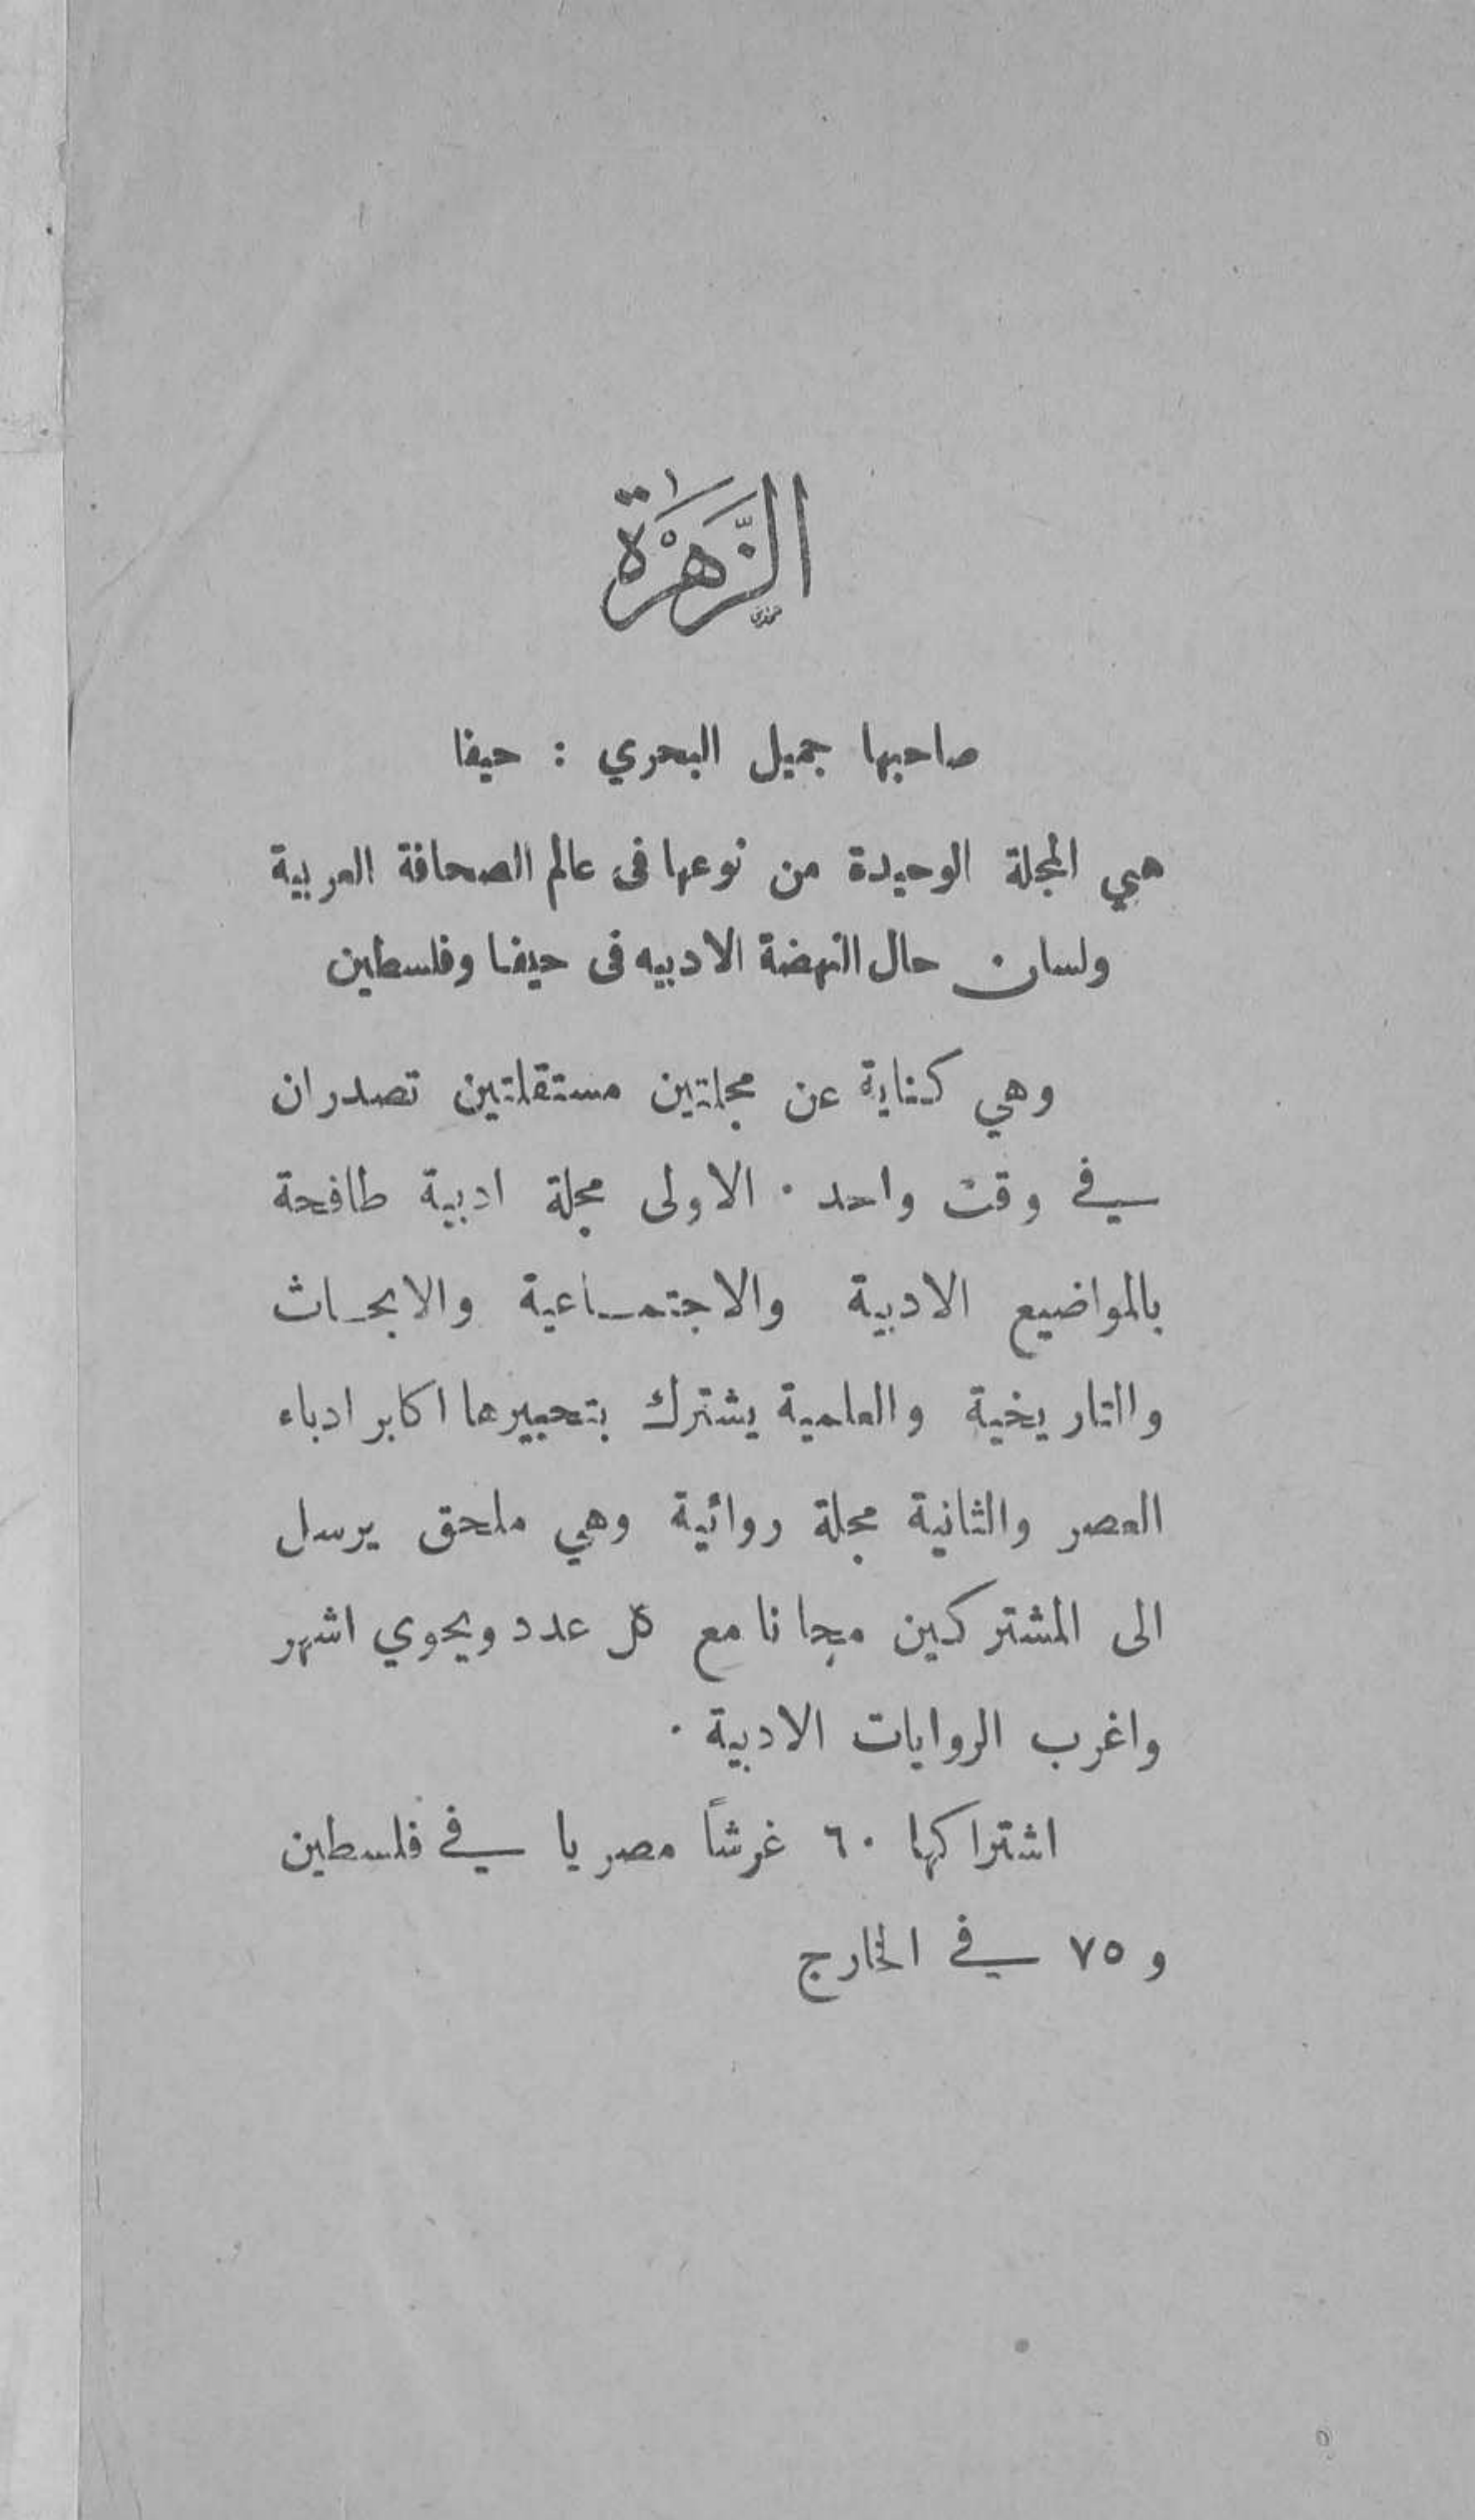 الزَّهَرْة
صاحبها جميل البحري : حيفا
هي المجلة الوحيدة من نوعها فى عالم الصحافة العربية
ولسان حال النهضة الادبيه فى حيفا وفلسطين
وهي كناية عن مجلتين مستقلتين تصدران
في وقت واحد . الاولى مجلة ادبية طافحة
بالمواضيع الادبية والاجتماعية والابحاث
والتاريخية والعلمية يشترك بتحبيرها اكابر ادباء
العصر والثانية مجلة روائية وهي ملحق يرسل
الى المشتركين مجانا مع كل عدد ويحوي اشهر
واغرب الروايات الادبية .
اشتراكها ٦٠ غرشاً مصريا في فلسطين
و ٧٥ في الخارج